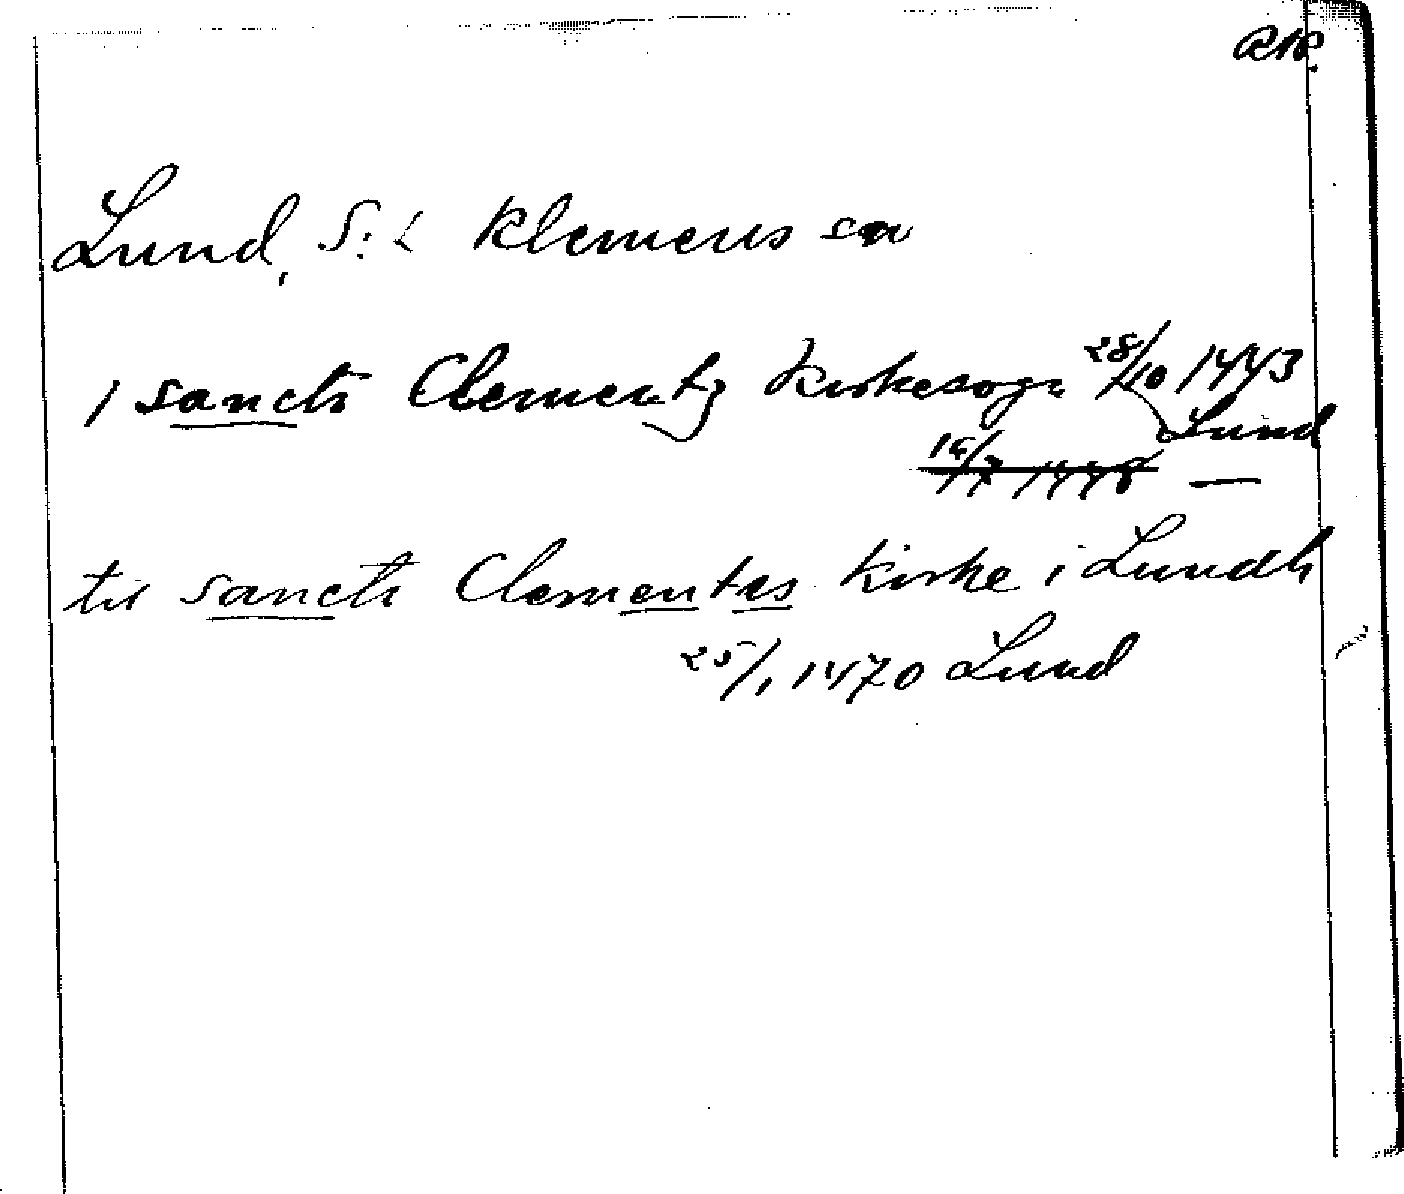 Lund, S:t Klemens sn
i sancti Clementz kirkesogn 28/10 1443
Lund
16/7 1448 —
til sancti Clementes kirke i Lundh
25/1 1470 Lund